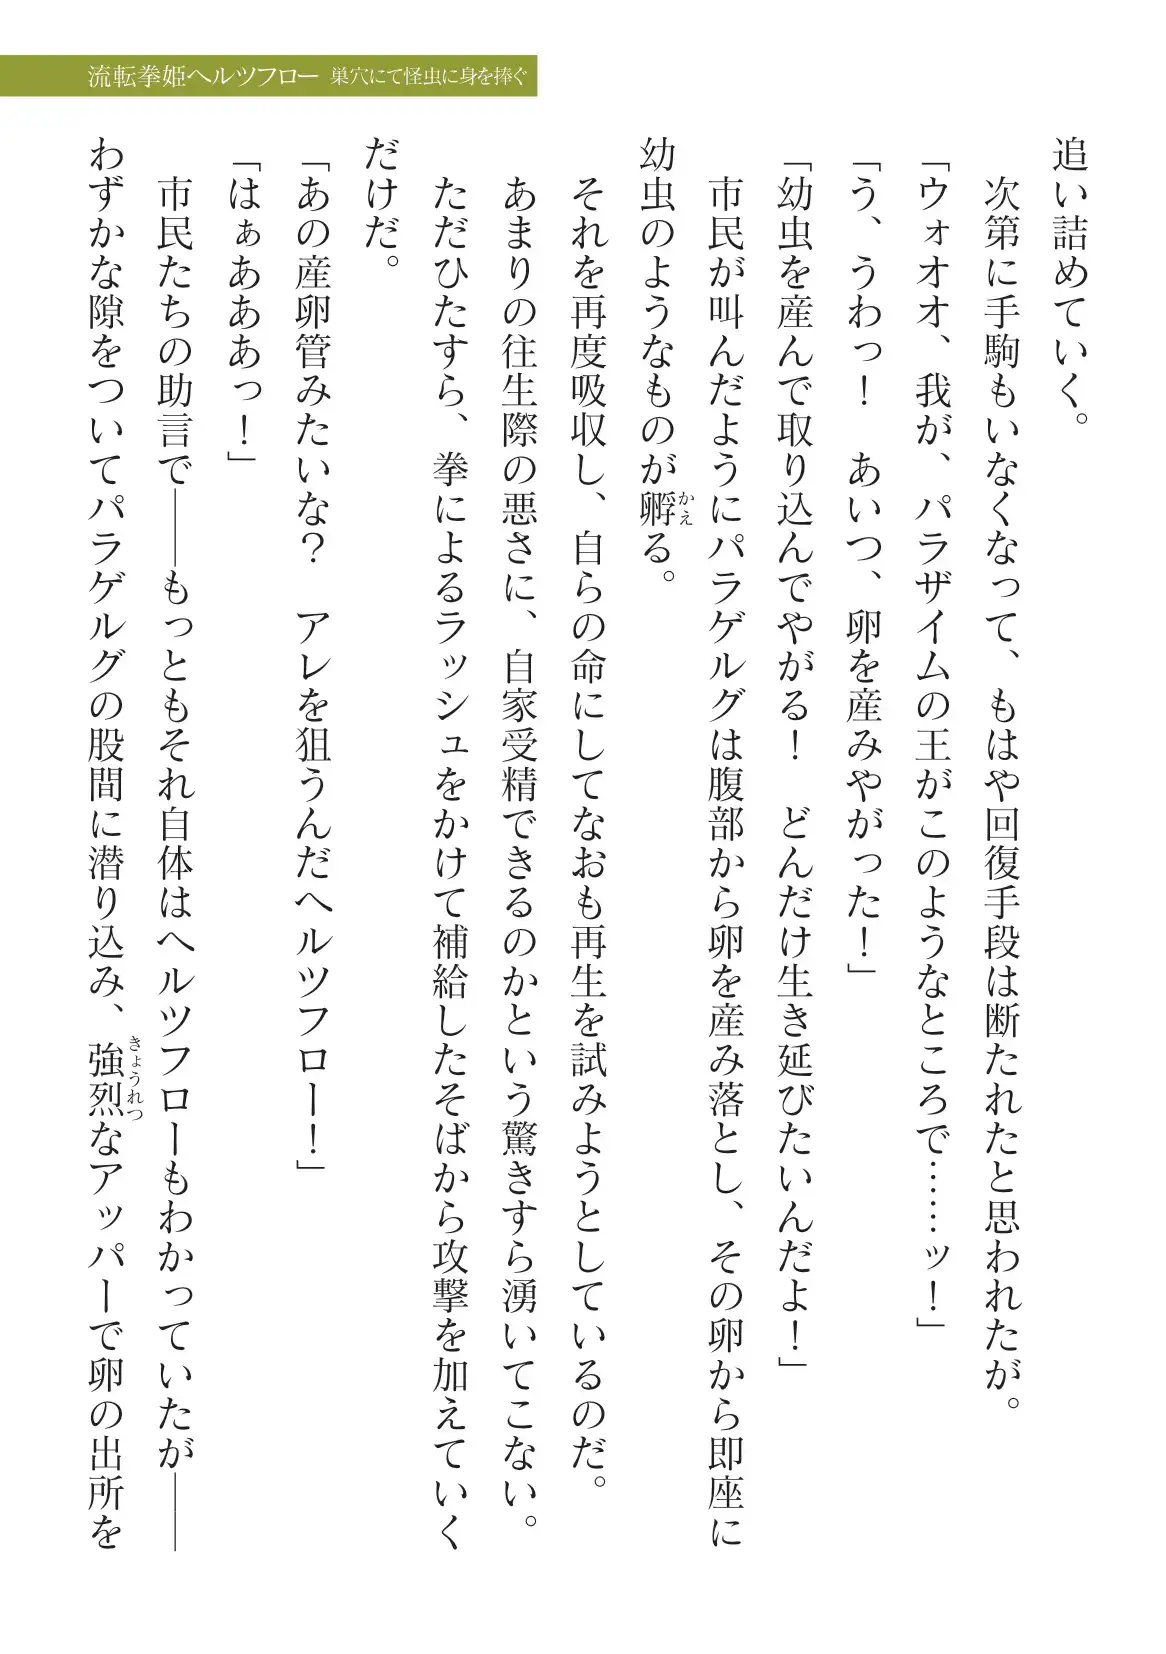 流転拳姫ヘルツフロー 巣穴にて怪虫に身を捧ぐ
追い詰めていく。
　次第に手駒もいなくなって、もはや回復手段は断たれたと思われたが。
「ウォオオ、我が、パラザイムの王がこのようなところで……ッ！」
「う、うわっ！　あいつ、卵を産みやがった！」
「幼虫を産んで取り込んでやがる！　どんだけ生き延びたいんだよ！」
　市民が叫んだようにパラゲルグは腹部から卵を産み落とし、その卵から即座に
幼虫のようなものが孵かえる。
　それを再度吸収し、自らの命にしてなおも再生を試みようとしているのだ。
　あまりの往生際の悪さに、自家受精できるのかという驚きすら湧いてこない。
　ただひたすら、拳によるラッシュをかけて補給したそばから攻撃を加えていく
だけだ。
「あの産卵管みたいな？　アレを狙うんだヘルツフロー！」
「はぁあああっ！」
　市民たちの助言で――もっともそれ自体はヘルツフローもわかっていたが――
わずかな隙をついてパラゲルグの股間に潜り込み、強烈きょうれつなアッパーで卵の出所を